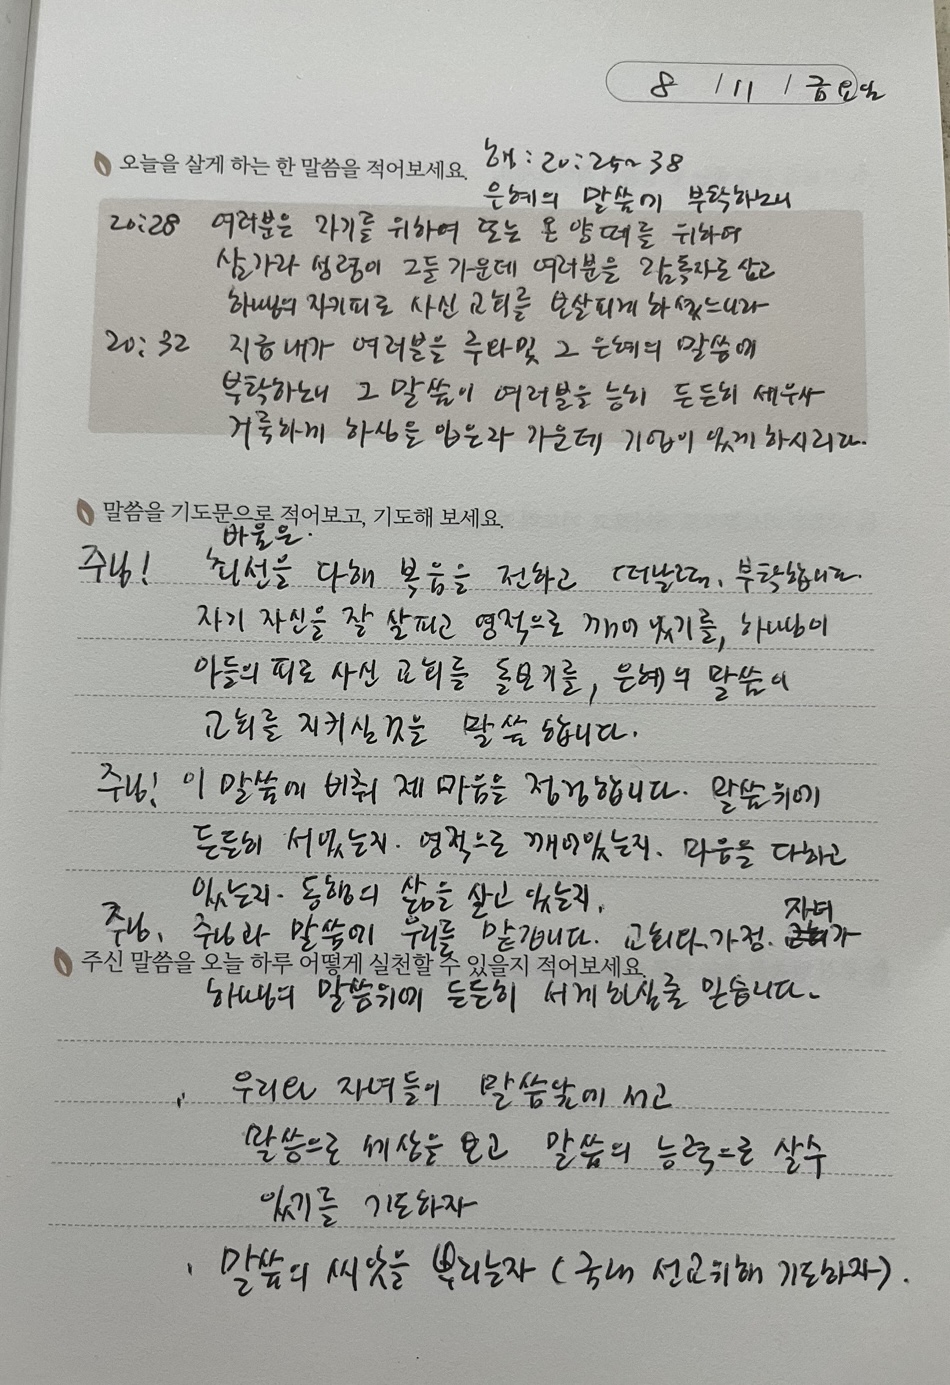 8 / 11 / 금요일
오늘을 살게 하는 한 말씀을 적어보세요.
행: 20:25~38
은혜의 말씀에 부탁하노니
20:28 여러분은 자기를 위하여 또는 온 양떼를 위하여
삼가라 성령이 그들 가운데 여러분을 감독자로 삼고
하나님의 자기피로 사신 교회를 보살피게 하셨느니라
20:32 지금 내가 여러분을 주와 및 그 은혜의 말씀에
부탁하노니 그 말씀이 여러분을 능히 든든히 세우사
거룩하게 하심을 입은자 가운데 기업이 있게 하시리라.
말씀을 기도문으로 적어보고, 기도해 보세요.
바울은.
주님! 최선을 다해 복음을 전하고 (떠날때, 부탁합니다.
자기 자신을 잘 살피고 영적으로 깨어 있기를, 하나님이
아들의 피로 사신 교회를 돌보기를, 은혜의 말씀이
교회를 지키실것을 말씀 합니다.
주님! 이 말씀에 비춰 제 마음을 점검합니다. 말씀위에
든든히 서있는지. 영적으로 깨어있는지. 마음을 다하고
있는지. 동행의 삶을 살고 있는지.
자녀
주님. 주님과 말씀에 우리를 맡깁니다. 교회다. 가정. 가
주신 말씀을 오늘 하루 어떻게 실천할 수 있을지 적어보세요.
하나님의 말씀위에 든든히 서게하심을 믿습니다.
우리 자녀들이 말씀앞에 서고
말씀으로 세상을 보고 말씀의 능력으로 살수
있기를 기도하자
말씀의 씨앗을 뿌리는자 (국내 선교위해 기도하자).